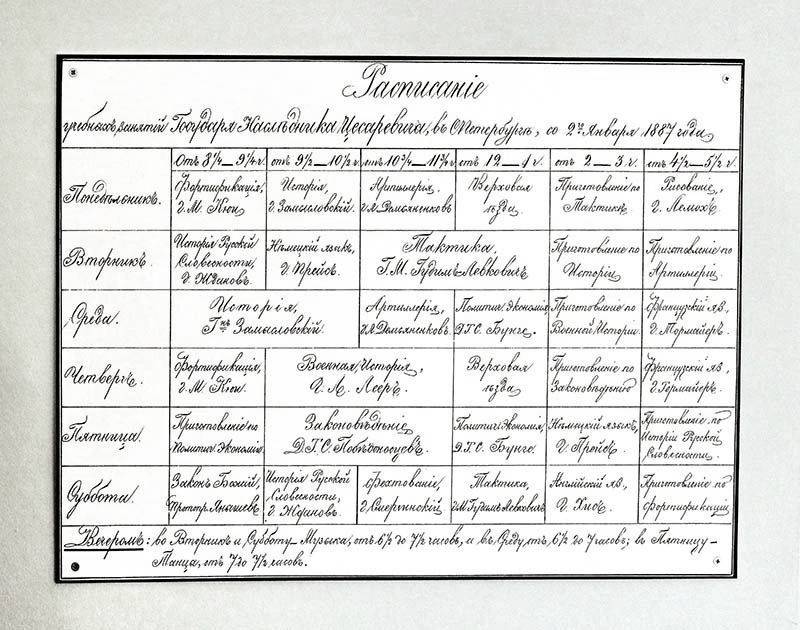 Расписаніе
учебныхъ занятій Государя Наслѣдника Цесаревича, въ С.Петербургѣ, со 2го Января 1887 года
Отъ 8¼ — 9¼ ч. отъ 9½ — 10½ ч. отъ 10¾ — 11¾ ч. отъ 12 — 1 ч. отъ 2 — 3. ч. отъ 4½ — 5½ ч.
Понедѣльникъ. Фортификація, Исторія, Артиллерія. Верховая Приготовленіе по Рисованіе,
Г. М. Кюи Г. Замысловскій. Г.М. Демьяненковъ ѣзда. Тактикѣ Г. Лемохъ
Вторникъ. Исторія Русской Нѣмецкій языкъ, Тактика, Приготовленіе по Приготовленіе по
Словесности, Г. Прейсъ. Г. М. Гудимъ-Левковичъ Исторіи Артиллеріи.
Г. Ждановъ.
Среда. Исторія, Артиллерія, Политич. Экономія, Приготовленіе по Французскій яз.,
Гнъ Замысловскій. Г.М. Демьяненковъ. Д.Т.С. Бунге. Военной Исторіи. Г. Тормайеръ.
Четвергъ. Фортификація, Военная Исторія, Верховая Приготовленіе по Французскій яз.,
Г. М. Кюи. Г. Л. Лееръ. ѣзда Законовѣдѣнію Г. Тормайеръ.
Пятница. Приготовленіе по Законовѣдѣніе Политич. Экономія, Нѣмецкій языкъ, Приготовленіе по
Политич. Экономіи. Д.Т.С. Побѣдоносцевъ. Д.Т.С. Бунге. Г. Прейсъ. Исторіи Русской
Словесности.
Суббота. Законъ Божій, Исторія Русской Фехтованіе, Тактика, Англійскій яз., Приготовленіе по
Протпр. Янышевъ Словесности, Г.М. Гудимъ-Левковичъ Г. Хисъ. Фортификаціи
Г. Ждановъ.
Вечеромъ: во Вторникъ и Субботу — Музыка, отъ 6½ до 7½ часовъ, а въ Среду, отъ 6½ до 7 часовъ; въ Пятницу —
Танцы, отъ 7 до 7½ часовъ.